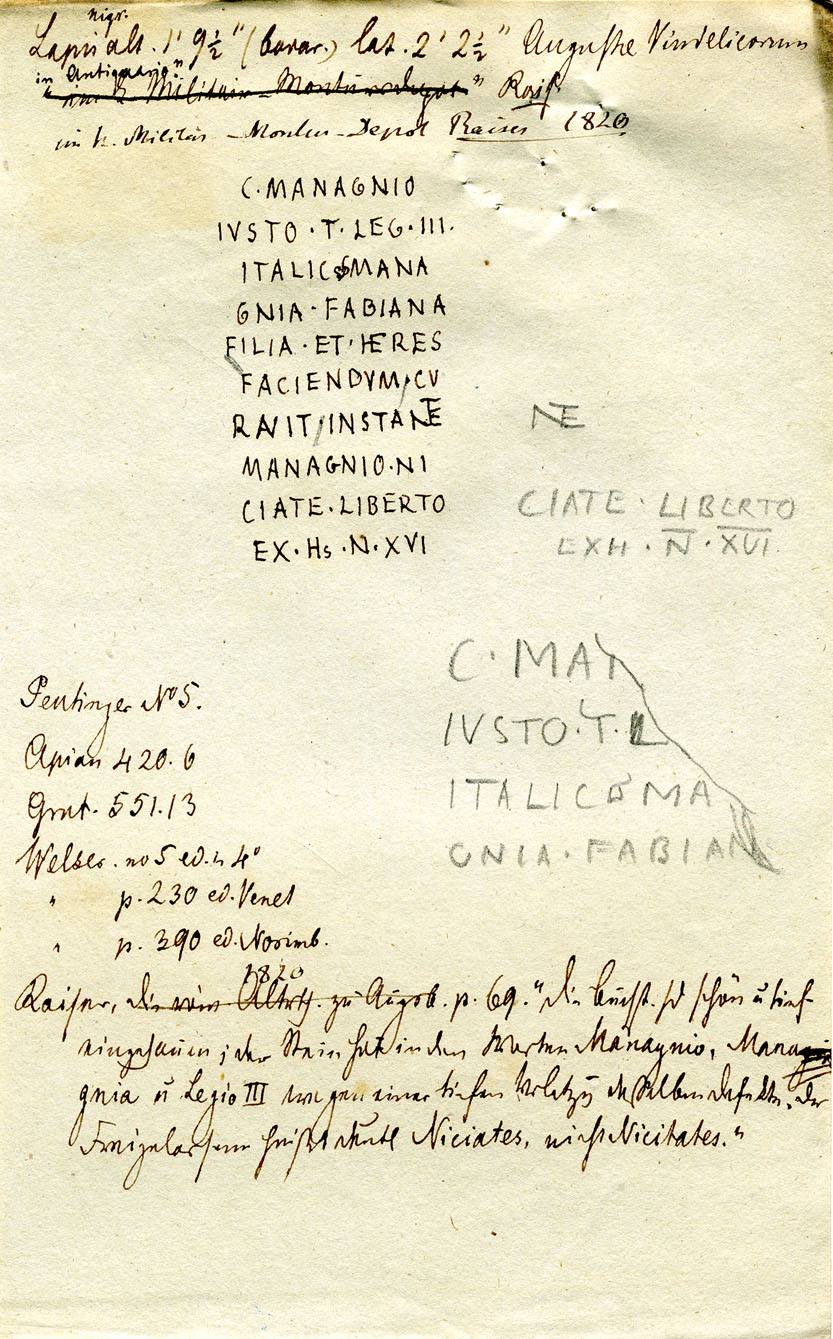 nigr.
Lapis alt. 1' 9½" (bavar.) lat. 2' 2½" Augustae Vindelicorum
in Antiquario"
"im k. Militair-Monturdepot" Rais.
im k. Militär-Montur-Depot Raiser 1820
C·MANAGNIO
IVSTO·T·LEG·III·
ITALICO MANA
GNIA·FABIANA
FILIA·ET·HERES
FACIENDVM CV
RAVIT INSTANTE
NE
MANAGNIO·NI
CIATE·LIBERTO
CIATE·LIBERTO
EX·Hs·N·XVI
EXH·N·XVI
C·MAN
IVSTO·T·L
ITALICO MA
GNIA·FABIAN
Peutinger No 5.
Apian 420.6
Grut. 551.13
Welser. no 5 ed. in 4°
" p. 230 ed. Venet
" p. 390 ed. Norimb.
1820
Raiser, die röm Alterth. zu Augsb. p. 69. "Die Buchst. sd schön u tief
eingehauen; der Stein hat in den Worten Managnio, Mana
gnia u Legio III wegen einer tiefen Verletzg desselben Defekte. Der
Freigelassene heißt deutl Niciates, nicht Nicitates."